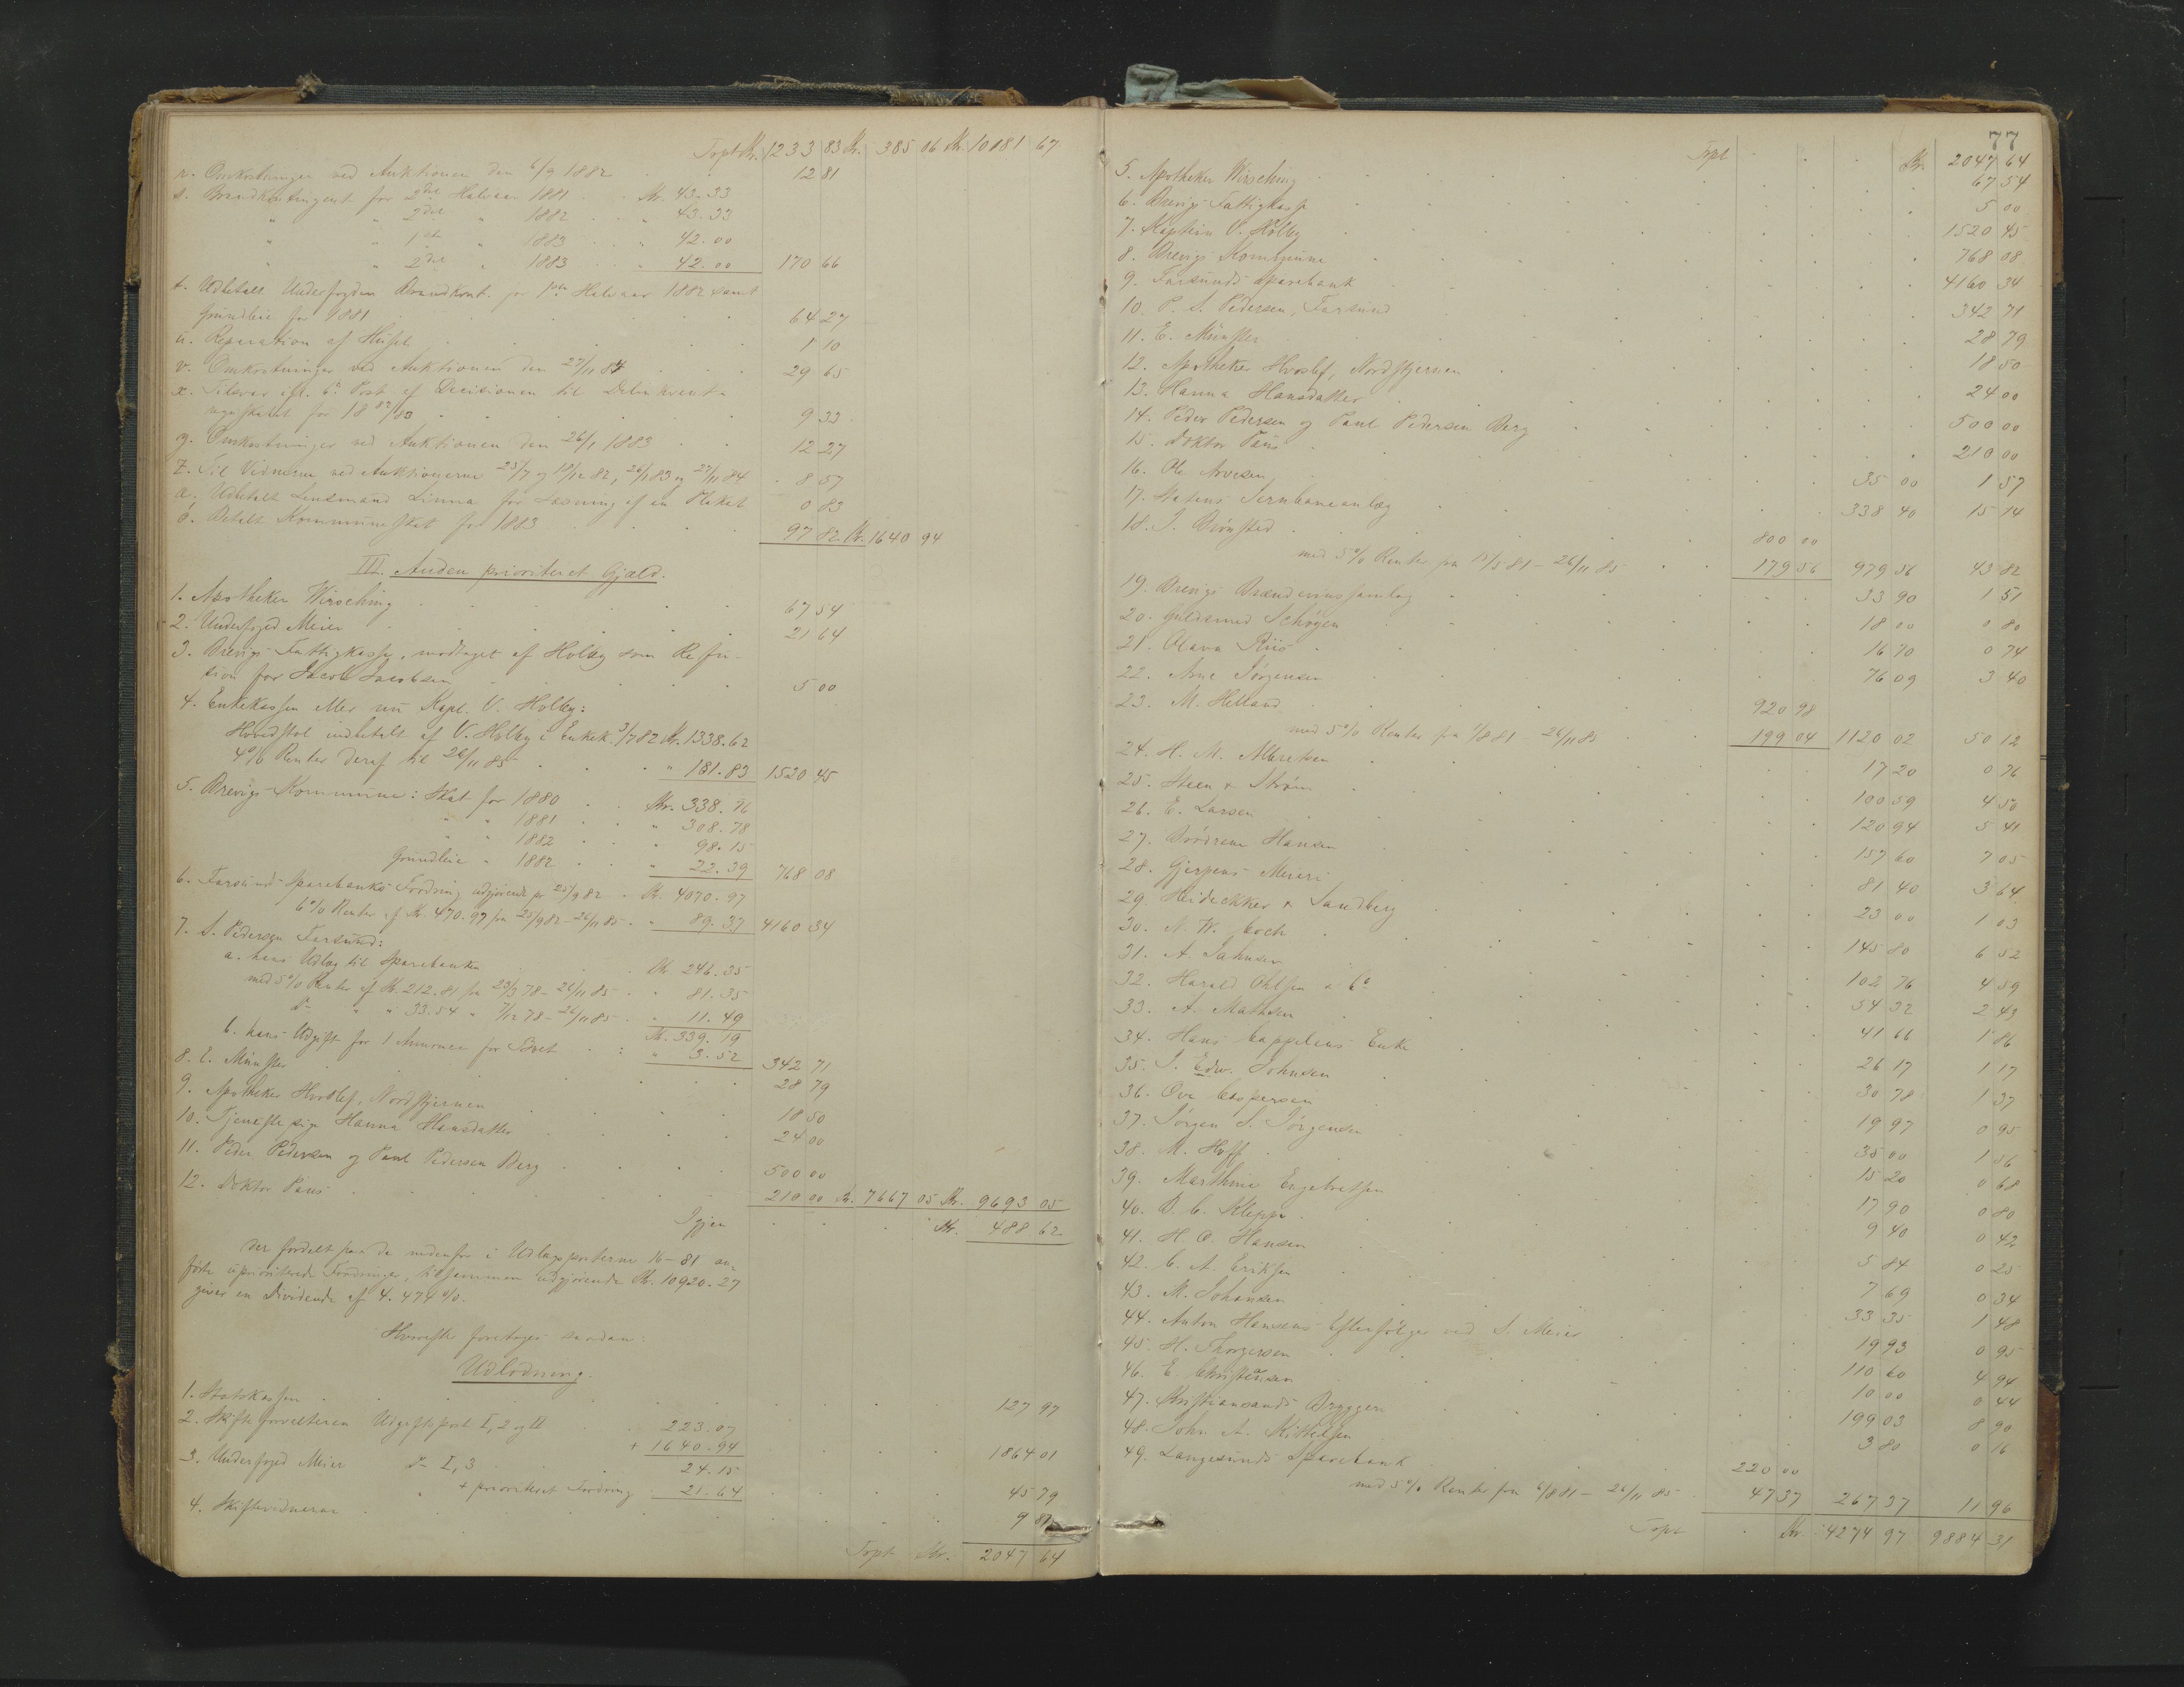 Trpt Kr. 1233 83 Kr. 385 06 Kr. 10181 67
r. Omkostninger ved Auktionen den 6/9 1882 . . 12 81
s. Brandkontingent for 2det Halvaar 1881 . . Kr. 43.33
" " 2det " 1882 . . " 43.33
" " 1ste " 1883 . . " 42.00
" " 2det " 1883 . . " 42.00 170 66
t. Udbetalt Underfogden Brandkont. for 1ste Halvaar 1882 samt
Grundleie for 1881 . . . 64 27
u. Reparation af Huset . . . 1 10
v. Omkostninger ved Auktionen den 27/11 84 . . 29 65
x. Tilsvar ifl. 6te Post af Decisionen til Debitkvents-
regnskabet for 1882/83 . . . 9 33
y. Omkostninger ved Auktionen den 26/1 1883 . . 12 27
z. Til Vidnerne ved Auktionerne 25/7 og 18/12 82, 26/1 83 og 27/11 84 . 8 57
æ. Udbetalt Lensmand Linna for Læsning af en Plakat 0 83
ö. Betalt Kommuneskat for 1883 . . . 97 82 Kr. 1640 94
III. Anden prioriteret Gjæld.
1. Apotheker Wirsching . . . 67 54
2. Underfoged Meier . . . 21 64
3. Brevigs Fattigkasse, modtaget af Holby som Refu-
sion for Jacob Jacobsen . . . 5 00
4. Enkekassen eller nu Kapt. V. Holby:
Hovedstol indbetalt af V. Holby i Enkek. 3/7 82 Kr. 1338.62
4% Renter deraf til 26/11 85 . . . " 181.83 1520 45
5. Brevigs Kommune: Skat for 1880 . . Kr. 338.76
" " 1881 . . " 308.78
" " 1882 . . " 98.15
Grundleie " 1882 . . " 22.39 768 08
6. Farsunds Sparebanks Fordring udgjørende pr 25/9 82 . Kr. 4070.97
6% Renter af Kr. 470.97 fra 25/9 82 - 26/11 85 . . " 89.37 4160 34
7. S. Pedersen Farsund:
a. hans Udlæg til Sparebanken . . Kr. 246.35
med 5% Renter af Kr. 212.81 fra 23/3 78 - 26/11 85 . . " 81.35
Do " " 33.54 " 7/12 78 - 26/11 85 . . " 11.49
Kr. 339.19
b. hans Udgift for 1 Annonce for Boet . : " 3.52 342 71
8. E. Münster . . . 28 79
9. Apotheker Hvoslef, Nordstjernen . . . 18 50
10. Tjenestepige Hanna Hansdatter . . . 24 00
11. Peder Pedersen og Paul Pedersen Berg . . . 500 00
12. Doktor Paus . . . 210 00 Kr. 7667 05 Kr. 9693 05
Igjen . . . Kr. 488 62
der fordelt paa de nedenfor i Udlægsposterne 16-81 an-
førte uprioriterede Fordringer, tilsammen udgjørende Kr. 10920.27
giver en Dividende af 4.474%.
Hvorefter foretages saadan:
Udlodning.
1. Statskassen . . . 127 97
2. Skifteforvalteren Udgiftspost I, 2 og II . . 223.07
+ 1640.94 . . . 1864 01
3. Underfoged Meier Do I, 3 . . 24.15
" + prioriteret Fordring . 21.64 . . . 45 79
4. Skiftevidnerne . . . 9 87
Trpt Kr. 2047 64
77
Trpt . . . Kr. 2047 64
5. Apotheker Wirsching . . . 67 54
6. Brevigs Fattigkasse . . . 5 00
7. Kaptein V. Holby . . . 1520 45
8. Brevigs Kommune . . . 768 08
9. Farsunds Sparebank . . . 4160 34
10. P. S. Pedersen, Farsund . . . 342 71
11. E. Münster . . . 28 79
12. Apotheker Hvoslef, Nordstjernen . . . 18 50
13. Hanna Hansdatter . . . 24 00
14. Peder Pedersen og Paul Pedersen Berg . . . 500 00
15. Doktor Paus . . . 210 00
16. Ole Arvesen . . . 35 00 1 57
17. Statens Jernbaneanlæg . . . 338 40 15 14
18. J. Brönsted . . . 800 00
med 5% Renter fra 15/5 81 - 26/11 85 . . 179 56 979 56 43 82
19. Brevigs Brændevinssamlag . . . 33 90 1 51
20. Guldsmed Schøyen . . . 18 00 0 80
21. Olava Riis . . . 16 70 0 74
22. Arne Jørgensen . . . 76 09 3 40
23. M. Helland . . . 920 98
med 5% Renter fra 1/8 81 - 26/11 85 . . 199 04 1120 02 50 12
24. H. M. Albretsen . . . 17 20 0 76
25. Steen & Strøm . . . 100 59 4 50
26. E. Larsen . . . 120 94 5 41
27. Brödrene Hansen . . . 157 60 7 05
28. Gjerpens Meieri . . . 81 40 3 64
29. Heideckker & Sandberg . . . 23 00 1 03
30. N. W. Coch . . . 145 80 6 52
31. A. Jahnsen . . . 102 76 4 59
32. Harald Ohlsen & Co . . . 54 32 2 43
33. A. Mathsen . . . 41 66 1 86
34. Hans Cappelens Enke . . . 26 17 1 17
35. J. Edw. Johnsen . . . 30 78 1 37
36. Ove Caspersen . . . 19 97 0 95
37. Jørgen S. Jørgensen . . . 35 00 1 56
38. M. Hoff . . . 15 20 0 68
39. Marthine Engebretsen . . . 17 90 0 80
40. B. C. Kleppe . . . 9 40 0 42
41. H. O. Hansen . . . 5 84 0 25
42. C. A. Eriksen . . . 7 69 0 34
43. M. Johansen . . . 33 35 1 48
44. Anton Hansens Efterfölger ved S. Meier . . . 19 93 0 95
45. H. Thorgersen . . . 110 60 4 94
46. E. Christensen . . . 10 00 0 44
47. Christiansands Bryggeri . . . 199 03 8 90
48. John A. Kittelsen . . . 3 80 0 16
49. Langesunds Sparebank . . . 220 00
med 5% Renter fra 6/8 81 - 26/11 85 . 47 37 267 37 11 96
Trpt . Kr. 4274 97 9884 31